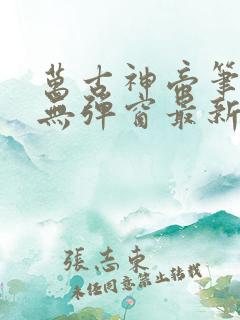 萬古神帝筆
無彈窗最新
張志東
未经同意禁止转载